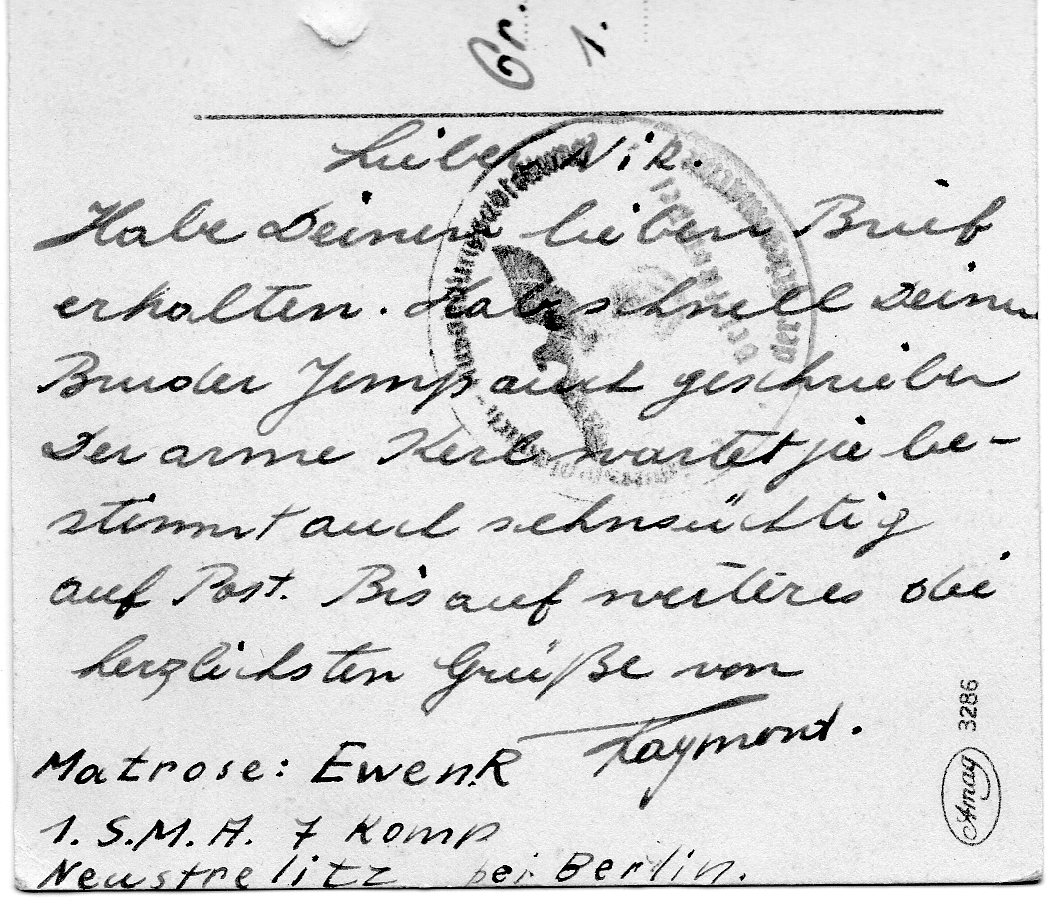 Gr.
1.
Lieber Nik.
Habe Deinen lieben Brief
erhalten. Habe schnell Deinem
Bruder Jemp auch geschrieben
Der arme Kerl wartet ja be-
stimmt auch sehnsüchtig
auf Post. Bis auf weiteres die
herzlichsten Grüße von
Raymont.
Matrose: Ewen R
1. S.M.A. 7 Komp
Neustrelitz bei Berlin.
der
Amag 3286